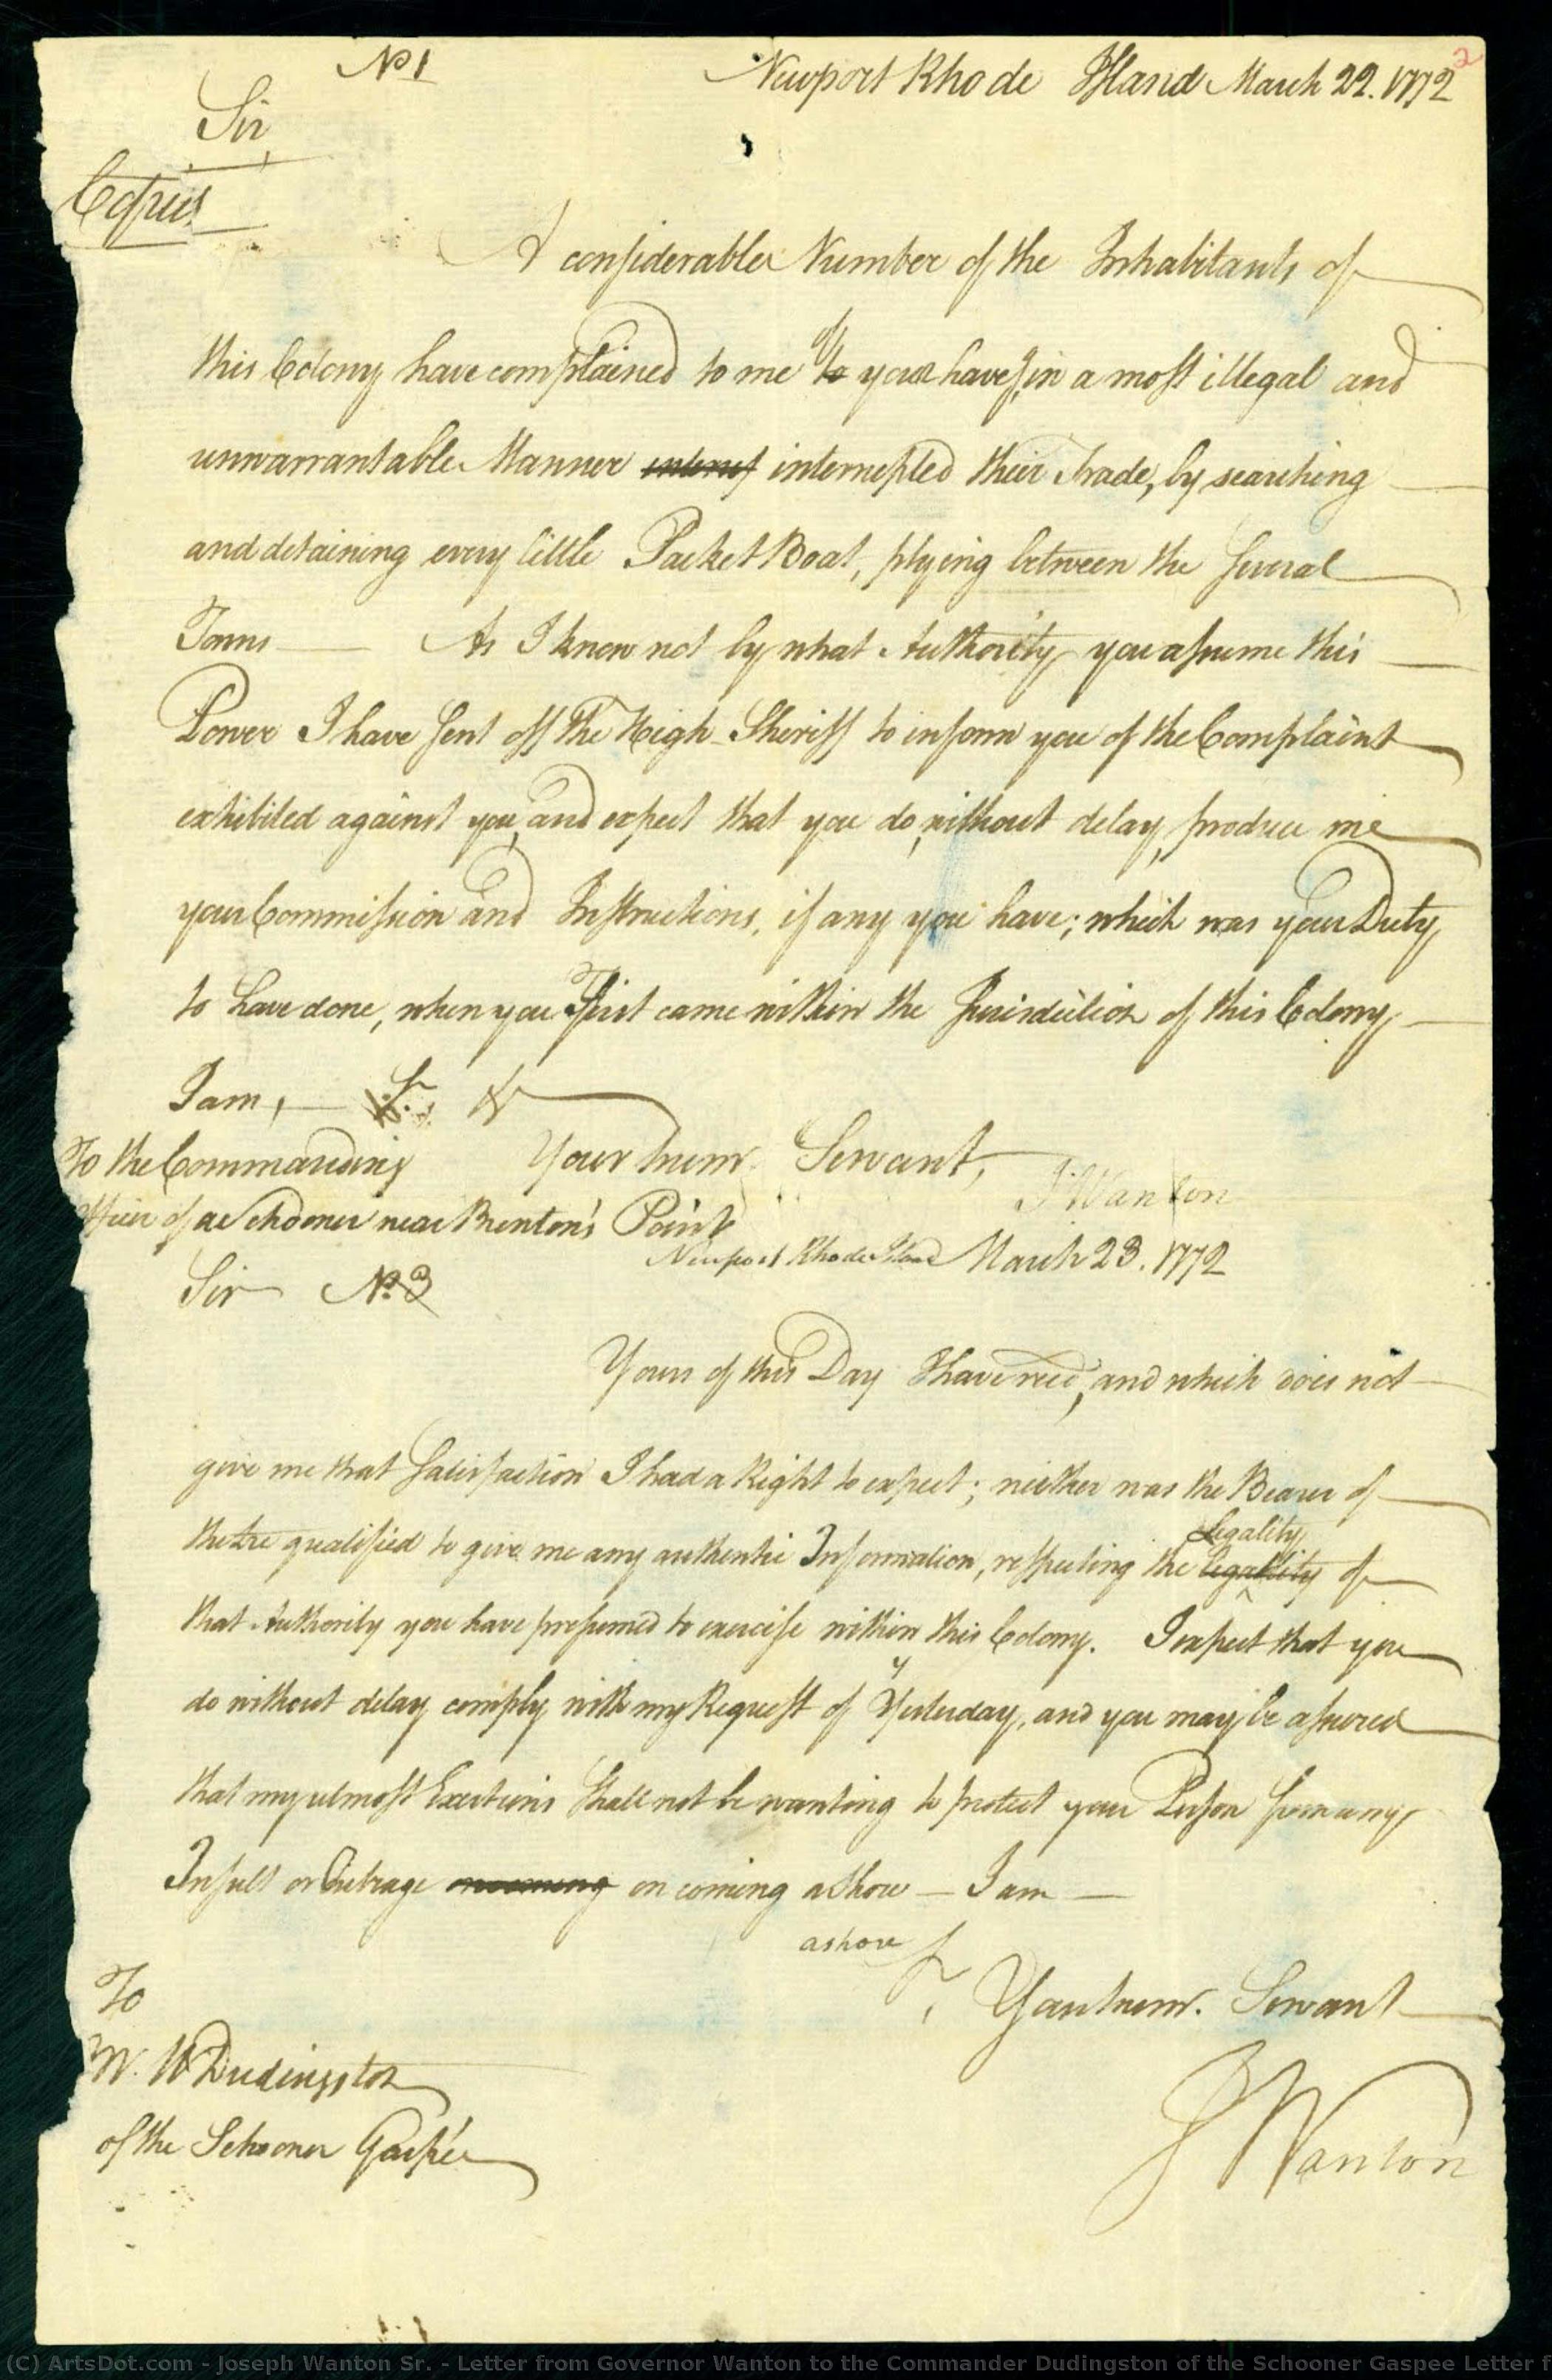 No 1 Newport Rhode Island March 22. 1772
2
Sir,
Copies
A considerable Number of the Inhabitants of
this Colony have complained to me of you having in a most illegal and
unwarrantable Manner interrupted their Trade, by searching
and detaining every little Packet Boat, plying between the several
Towns — As I know not by what Authority you assume this
Power I have sent off the High-Sheriff to inform you of the Complaint
exhibited against you, and expect that you do, without delay, produce me
your Commission and Instructions, if any you have; which was your Duty
to have done, when you First came within the Jurisdiction of this Colony —
I am, — Sr. &
To the Commanding Your hum. Servant,
J Wanton
Officer of a Schooner near Brenton's Point
Newport Rhode Island March 23. 1772
Sir No. 3
Yours of this Day I have recd, and which does not
give me that Satisfaction I had a Right to expect; neither was the Bearer of
legality
the Lre qualified to give me any authentic Information, respecting the legality of
that Authority you have presumed to exercise within this Colony. I expect that you
do without delay comply with my Request of Yesterday, and you may be assured
that my utmost Exertions shall not be wanting to protect your Person from any
Insult or Outrage on coming ashore — I am —
ashore
Sr, Your hum. Servant
To
W. Dudingston
of the Schooner Gaspee
J Wanton
(C) ArtsDot.com - Joseph Wanton Sr. - Letter from Governor Wanton to the Commander Dudingston of the Schooner Gaspee Letter f